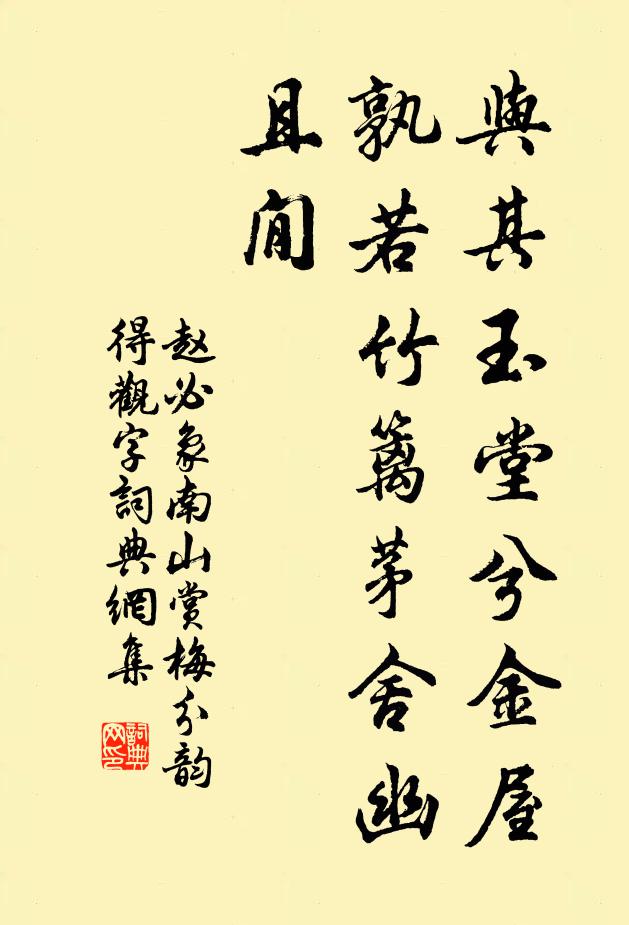 與其玉堂兮金屋
孰若竹籬茅舍幽
且閒
赵必象南山赏梅分韵
得觀字詞典網集
詞典网印